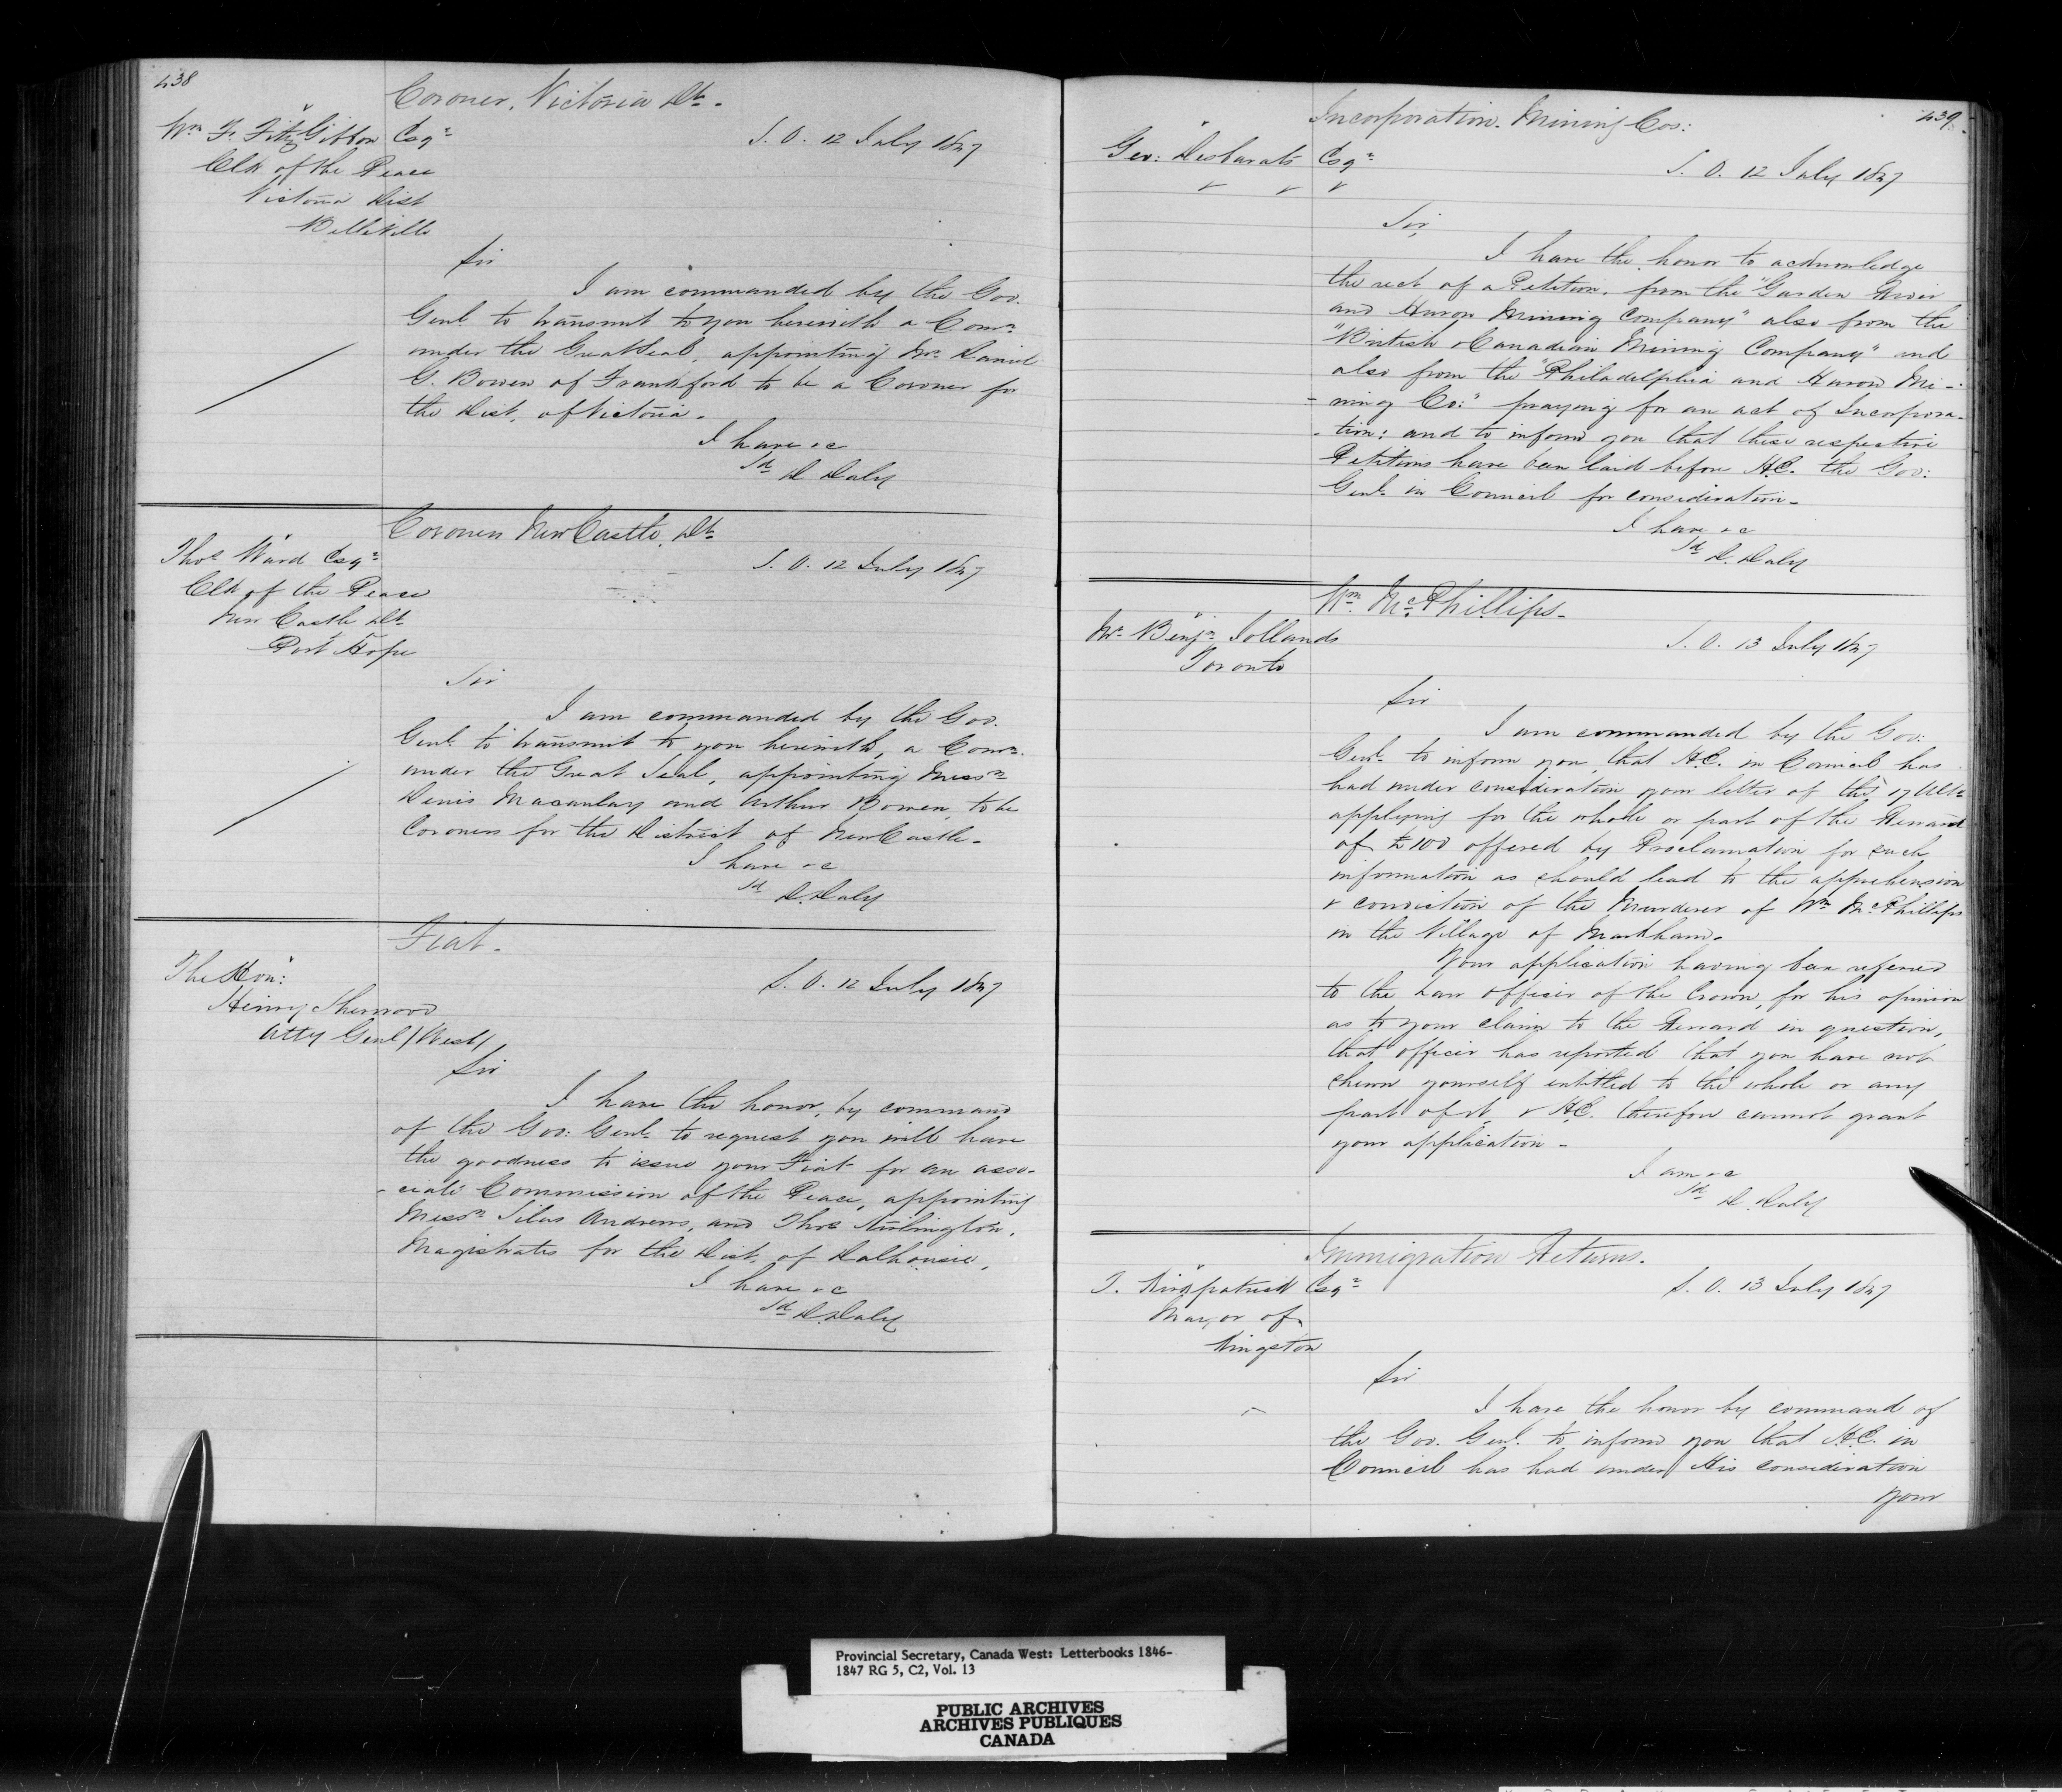 438
Coroner, Victoria Dt.
Wm F. FitzGibbon Esqr
S. O. 12 July 1847
Clk of the Peace
Victoria Dist
Belleville
Sir
I am commanded by the Gov.
Genl. to transmit to you herewith a Comn.
under the Great Seal, appointing Mr. Daniel
G. Bowen of Frankford to be a Coroner for
the Dist. of Victoria.
I have &c
Sd D Daly
Coroners NewCastle, Dt.
Thos Ward Esqr
S. O. 12 July 1847
Clk of the Peace
New Castle Dt.
Port Hope
Sir
I am commanded by the Gov.
Genl. to transmit to you herewith, a Comn.
under the Great Seal, appointing Messrs
Denis Macaulay and Arthur Bowen, to be
Coroners for the District of NewCastle.
I have &c
Sd D. Daly
Fiat.
The Hon:
S. O. 12 July 1847
Henry Sherwood
Atty Genl /West/
Sir
I have the honor, by command
of the Gov: Genl. to request you will have
the goodness to issue your Fiat for an asso-
-ciate Commission of the Peace, appointing
Messrs Silas Andrews, and Thos
Magistrates for the Dist. of Dalhousie.
I have &c
Sd D. Daly
439.
Incorporation. Mining Cos:
Geo: Desbarats Esqr
S. O. 12 July 1847
" " "
Sir,
I have the honor to acknowledge
the rect of a Petition, from the "Garden River
and Huron Mining Company" also from the
"British & Canadian Mining Company" and
also from the "Philadelphia and Huron Mi-
-ning Co:" praying for an act of Incorpora-
-tion: and to inform you that these respective
Petitions have been laid before H.E. the Gov:
Genl. in Council for consideration.
I have &c
Sd D. Daly
Wm. McPhillips.
Mr. Benjn. Jollands
S. O. 13 July 1847
Toronto
Sir
I am commanded by the Gov:
Genl. to inform you, that H.E. in Council has
had under consideration your letter of the 17 Ulto.
applying for the whole or part of the Reward
of £100 offered by Proclamation for such
information as should lead to the apprehension
& conviction of the Murderer of Wm McPhillips
in the Village of Markham.
Your application having been referred
to the Law officer of the Crown, for his opinion
as to your claim to the Reward in question,
that officer has reported that you have not
shewn yourself entitled to the whole or any
part of it, & H.E. therefore cannot grant
your application.
I am &c
Sd D. Daly
Immigration Returns.
T. Kirkpatrick Esqr
S. O. 13 July 1847
Mayor of
Kingston
Sir
I have the honor by command of
the Gov. Genl. to inform you that H.E. in
Council has had under His consideration
your
Provincial Secretary, Canada West: Letterbooks 1846-
1847 RG 5, C2, Vol. 13
PUBLIC ARCHIVES
ARCHIVES PUBLIQUES
CANADA